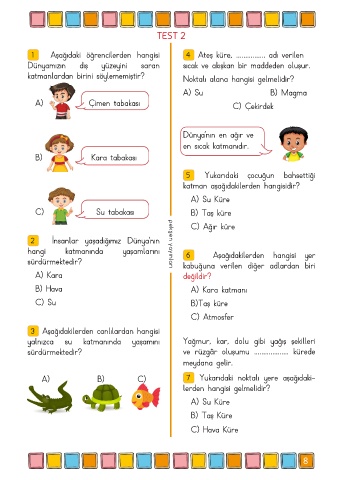 TEST 2
1 Aşağıdaki öğrencilerden hangisi
Dünyamızın dış yüzeyini saran
katmanlardan birini söylememiştir?
A) Çimen tabakası
B) Kara tabakası
C) Su tabakası
2 İnsanlar yaşadığımız Dünya'nın
hangi katmanında yaşamlarını
sürdürmektedir?
A) Kara
B) Hava
C) Su
3 Aşağıdakilerden canlılardan hangisi
yalnızca su katmanında yaşamını
sürdürmektedir?
A) B) C)
pelikgen yayınları
4 Ateş küre, ............... adı verilen
sıcak ve akışkan bir maddeden oluşur.
Noktalı alana hangisi gelmelidir?
A) Su B) Magma
C) Çekirdek
Dünya'nın en ağır ve
en sıcak katmanıdır.
5 Yukarıdaki çocuğun bahsettiği
katman aşağıdakilerden hangisidir?
A) Su Küre
B) Taş küre
C) Ağır küre
6 Aşağıdakilerden hangisi yer
kabuğuna verilen diğer adlardan biri
değildir?
A) Kara katmanı
B)Taş küre
C) Atmosfer
Yağmur, kar, dolu gibi yağış şekilleri
ve rüzgâr oluşumu ................. kürede
meydana gelir.
7 Yukarıdaki noktalı yere aşağıdaki-
lerden hangisi gelmelidir?
A) Su Küre
B) Taş Küre
C) Hava Küre
8